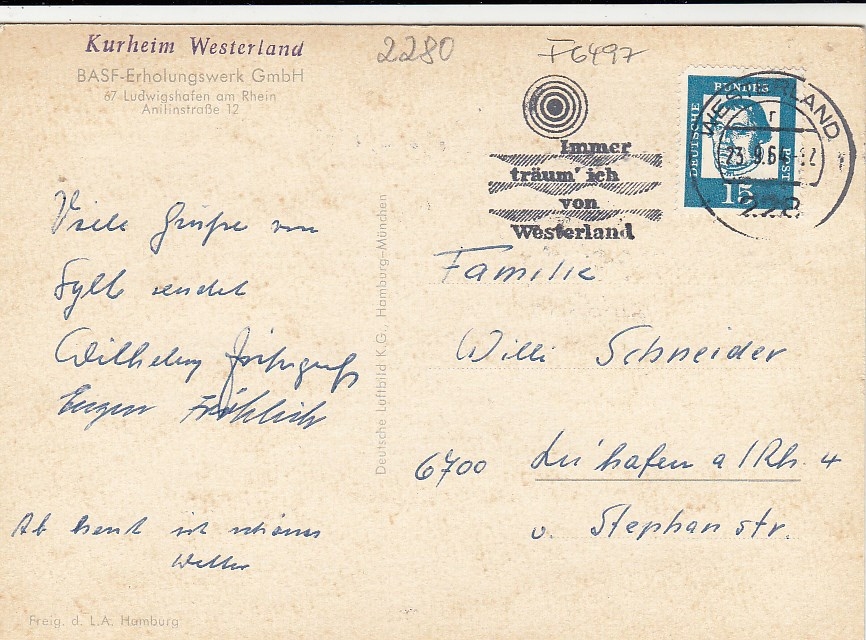 Kurheim Westerland
BASF-Erholungswerk GmbH
67 Ludwigshafen am Rhein
Anilinstraße 12
2280
F6497
Immer
träum' ich
von
Westerland
WESTERLAND
r
23.9.64
228
DEUTSCHE
BUNDES
POST
15
Viele Grüße von
Sylt sendet
Wilhelm
Eugen Fröhlich
Ab heut ist schönes
Wetter
Deutsche Luftbild K.G., Hamburg-München
Familie
Willi Schneider
6700 Lu'hafen a/Rh. 4
v. Stephanstr.
Freig. d. L.A. Hamburg